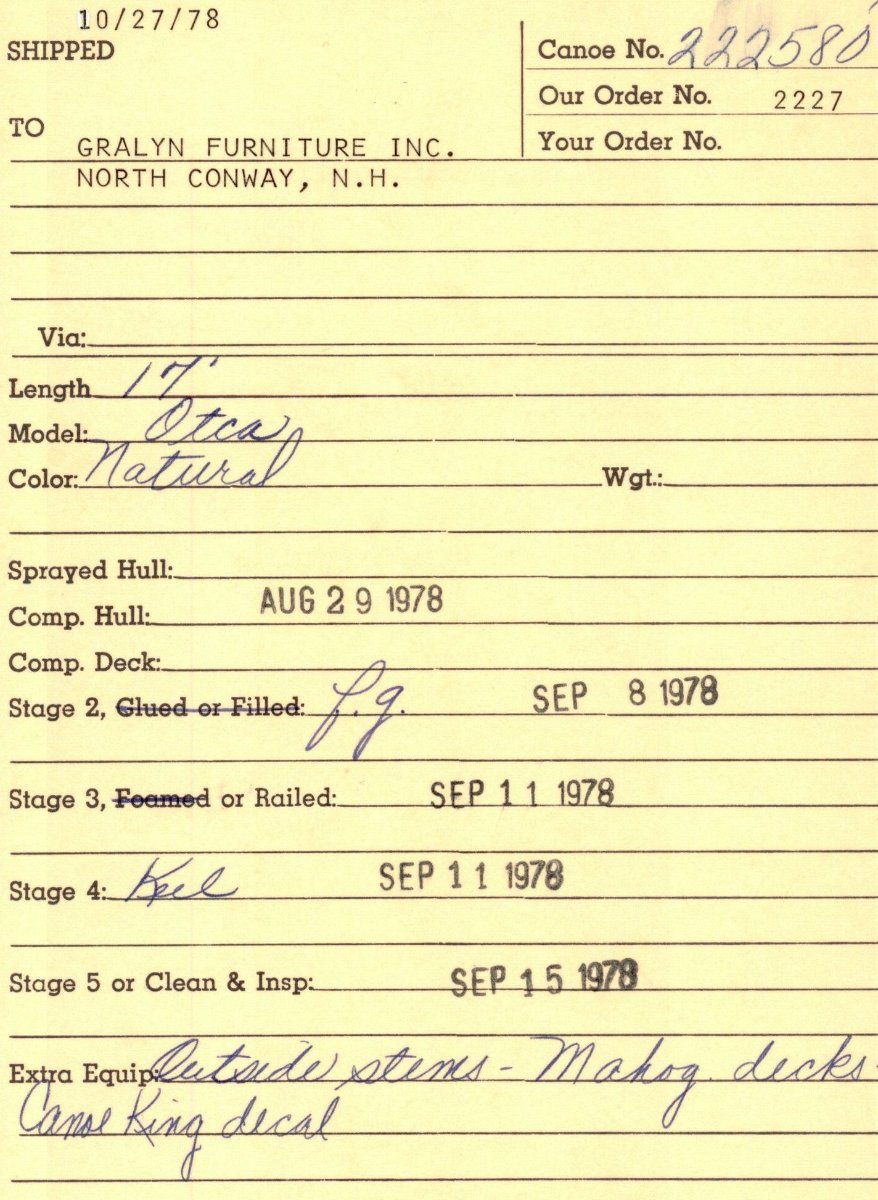 10/27/78
SHIPPED
Canoe No. 222580
Our Order No. 2227
TO
Your Order No.
GRALYN FURNITURE INC.
NORTH CONWAY, N.H.
Via:
Length 17'
Model: Otca
Color: Natural Wgt.:
Sprayed Hull:
Comp. Hull: AUG 29 1978
Comp. Deck:
Stage 2, Glued or Filled: f.g. SEP 8 1978
Stage 3, Foamed or Railed: SEP 11 1978
Stage 4: Keel SEP 11 1978
Stage 5 or Clean & Insp: SEP 15 1978
Extra Equip: Outside stems - Mahog. decks -
Canoe King decal